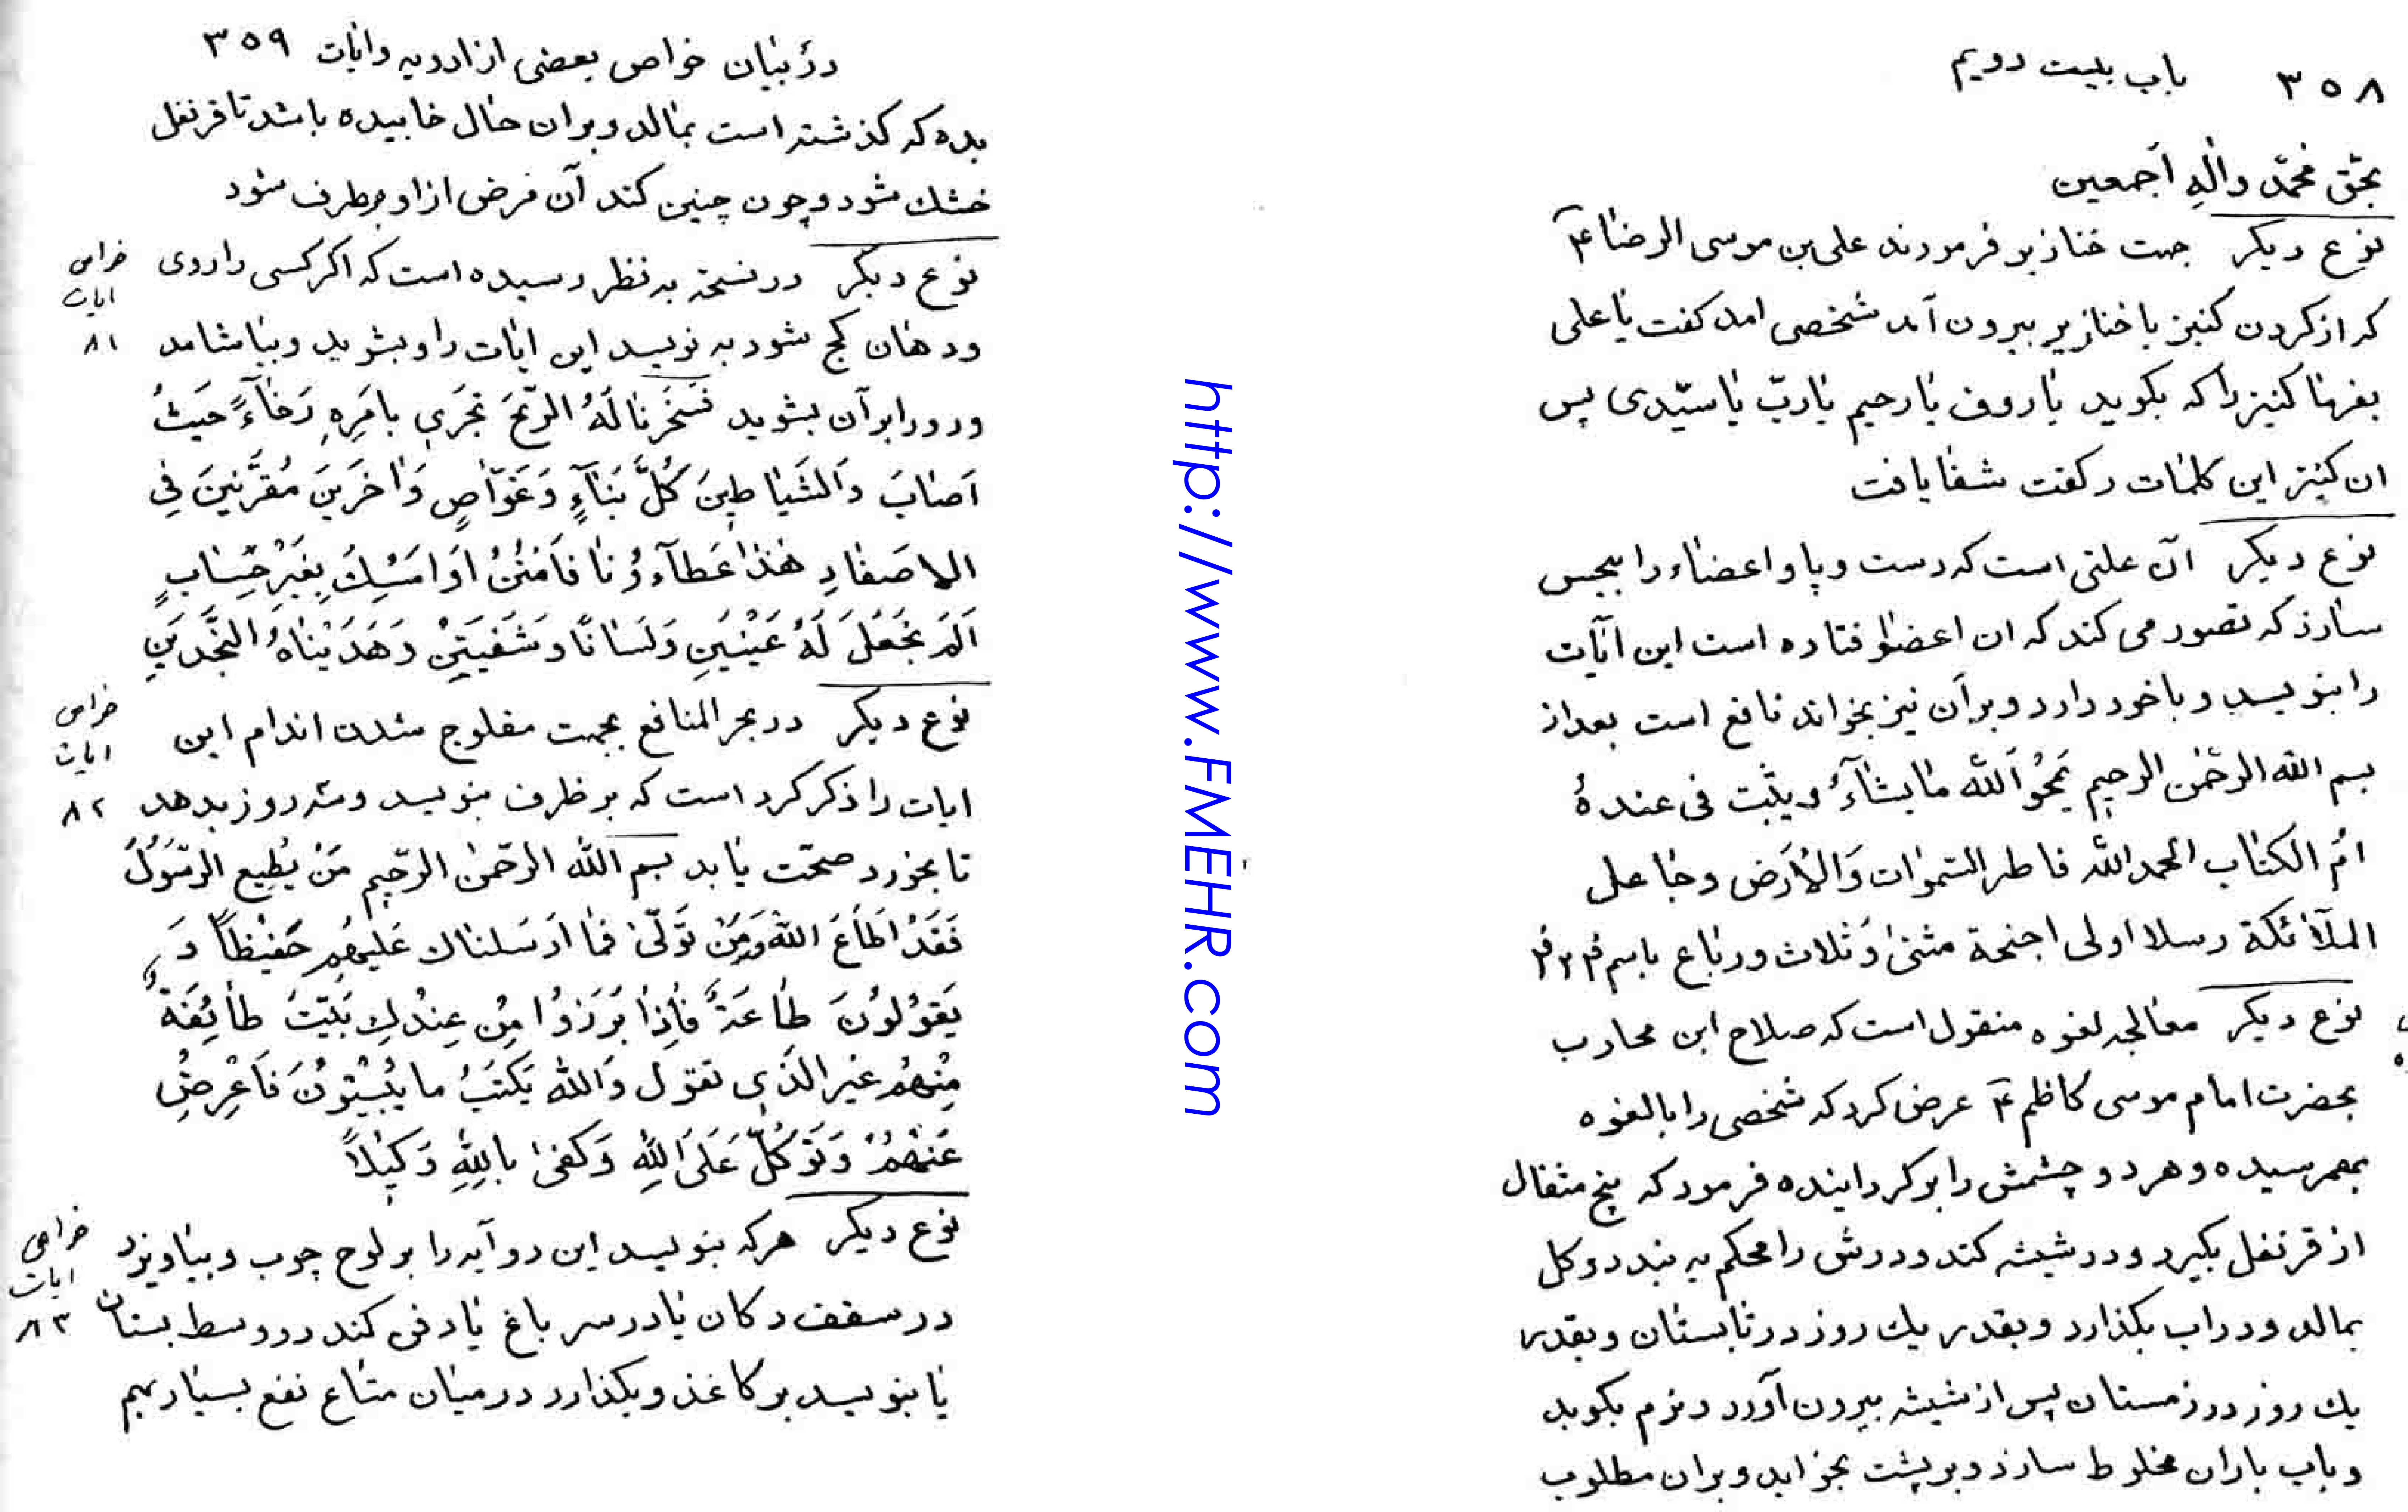 ٣٥٨ باب بیست دویم
بحق محمّد واٰلهِ اَجمعین
نوع دیکر جهت خنازیر فرمودند علی بن موسی الرضا ع
که از کردن کنیز با خنازیر بیرون آمد شخصی امد کفت یا علی
بفرما کنیز را که بکوید یا روف یا رحیم یا ربّ یا سیّدی پس
ان کنیز این کلمات رکفت شفا یافت
نوع دیکر آن علتی است که دست و پا و اعضاء را بیحس
سازد که تصور می کند که ان اعضا فتاده است این ایٓات
را بنویسد و با خود دارد و بر آن نیز بخواند نافع است بعداز
بسم الله الرحمٰن الرحیم یَمحُو اَلله ما یشآءُ ویثبت فی عندهُ
امُ الکتاب الحمدالله فاطر السّموات وَالاَرض وجاعل
الملآئکة رسلا اولی اجنحة مثنیٰ وَثلاث ورباع باسم
نوع دیکر معالجه لغوه منقول است که صلاح ابن محارب
بحضرت امام موسی کاظم ع عرض کرد که شخصی را بالغوه
بهمرسیده و هر دو چشمش را بر کردانیده فرمود که پنج مثقال
از قرنفل بکیرد و در شیشه کند و درش را محکم به بندد و کل
بمالد و در اب بکذارد و بقدر یك روز در تابستان و بقدر
یك روز در زمستان پس از شیشه بیرون آورد و نرم بکوبد
و باب باران مخلوط سازد و بر پشت بخوابد و بران مطلوب
در بیان خواص بعضی از ادویه وایات ٣٥٩
بده که کذشته است بمالد و بران حال خابیده باشد تا قرنفل
خشك شود و چون چنین کند آن فرض از او برطرف شود
نوع دیکر در نسخة به نظر رسیده است که اکر کسی را روی
خواص ایات ٨١
ودهان کج شود به نویسد این ایات را و بشوید و بیاشامد
ورورا بر آن بشوید فَسَخَّرنا لَهُ الرّیحَ تَجرَی بِامرِهِ رَخآءً حیَثُ
اَصابَ وَالشَیاطینَ کُلَّ بَنآءٍ وَغَوّاصٍ وَاٰخَرینَ مُقَرَّنینَ فی
الاصَفادِ هٰذا عَطآءُونا فاَمنُنُ اَو اَمسِكُ بِغَیرِ حِسابٍ
اَلَم نَجعَل لَهُ عَینَینِ وَلِسانًا وَشَفَیتَینِ وَهَدَیناهُ النَّجدَینِ
نوع دیکر در بحر المنافع بجهت مفلوج شدن اندام این
خواص ایات ٨٢
ایات را ذکر کرد است که بر ظرف بنویسد و سه روز بدهد
تا بخورد صحّت یابد بسم الله الرحمٰن الرّحیم مَن یُطیع الرّسَوُلَ
فَقَدُ اَطاعَ اللهُ وَمَن تَوَلّیٰ فَما ارَسَلناك عَلیهِم حَفیظاً وَ
یَقوُلوُنَ طاعَةٌ فَاِذا بَرَزوُا مِن عِندِك بَیَّتَ طائِفَةٌ
مِنهُم غَیر الّذَی تقول وَالله یَکتَبُ ما یُبَیِّتوُنَ فَاَعْرِضْ
عَنهُمْ وَتوَکَّلّ عَلَی اَللهِ وَکَفیٰ بِاللهِ وَکیلاً
نوع دیکر هرکه بنویسد این دو آیه را بر لوح چوب و بیاویزد
خواص ایات ٨٣
در سقف دکان یا در سر باغ یا دفن کند در وسط بستان
یا بنویسد بر کاغذ و بکذارد در میان متاع نفع بسیار بهم
http://www.FMEHR.com